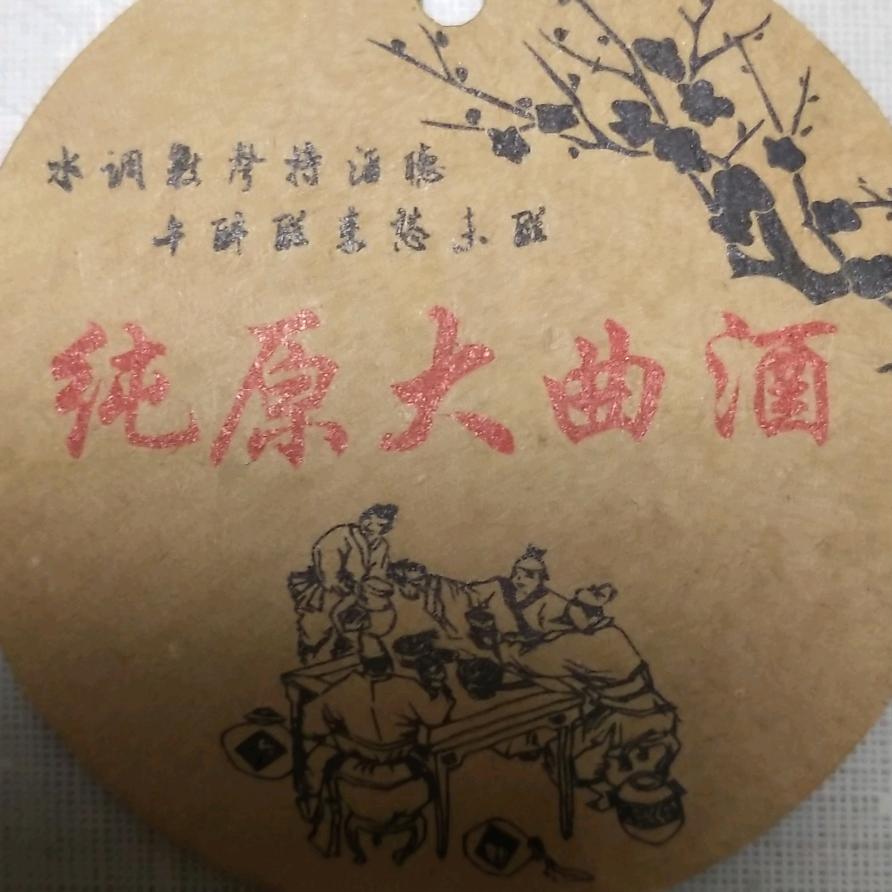 水调数声持酒听
午醉醒来愁未醒
纯原大曲酒